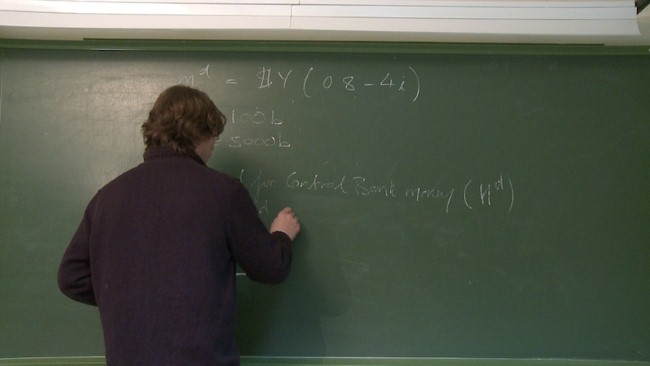 M^d = $Y (0.8 - 4i)
100b
5000b
for Central Bank money (H^d)
d